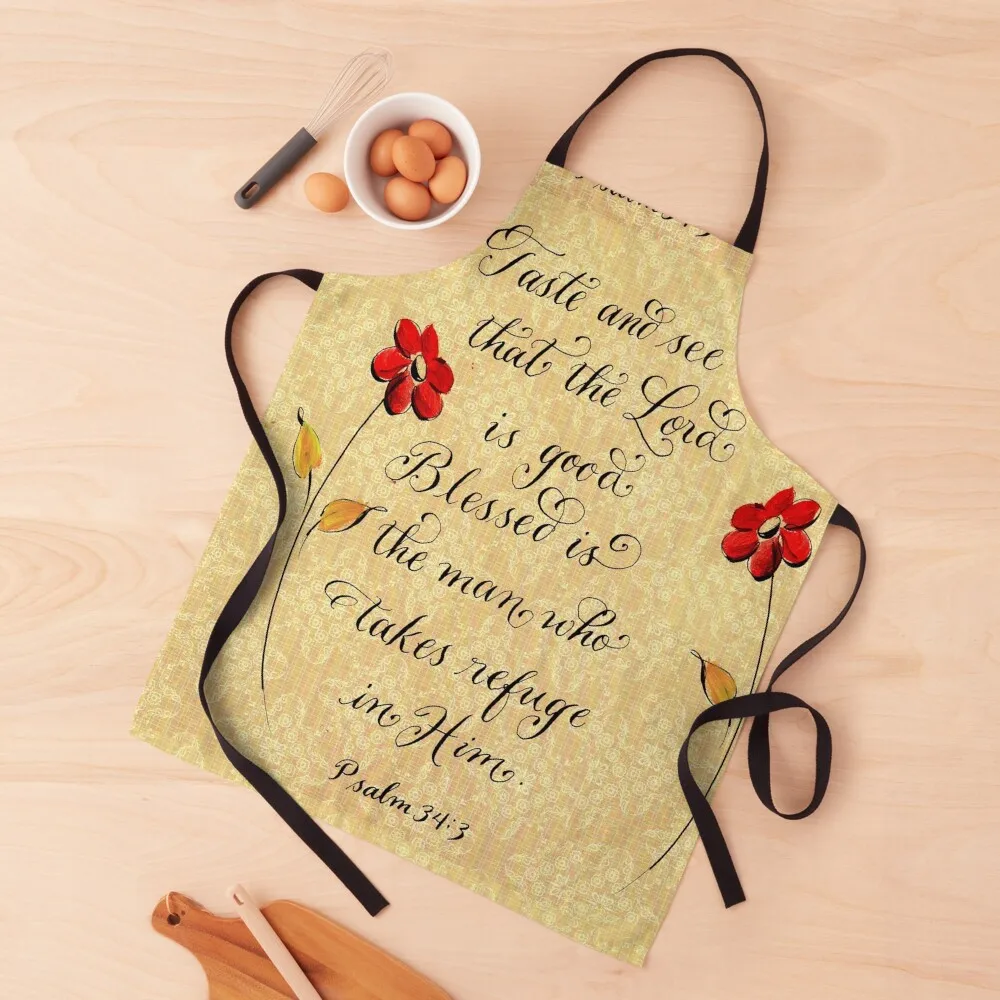 Taste and see
that the Lord
is good
Blessed is
the man who
takes refuge
in Him.
Psalm 34:3